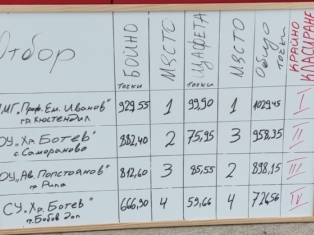 Отбор БОЙНО точки МЯСТО ЩАФЕТА точки МЯСТО Общо точки КРАЙНО КЛАСИРАНЕ
ПМГ „Проф. Ем. Иванов" 929,55 1 99,90 1 1029,45 I
гр. Кюстендил
ОУ „Хр. Ботев" 882,40 2 75,95 3 958,35 II
с. Самораново
ОУ „Ав. Попстоянов" 812,60 3 85,55 2 898,15 III
гр. Рила
СУ „Хр. Ботев" 666,90 4 59,66 4 726,56 IV
гр. Бобов дол